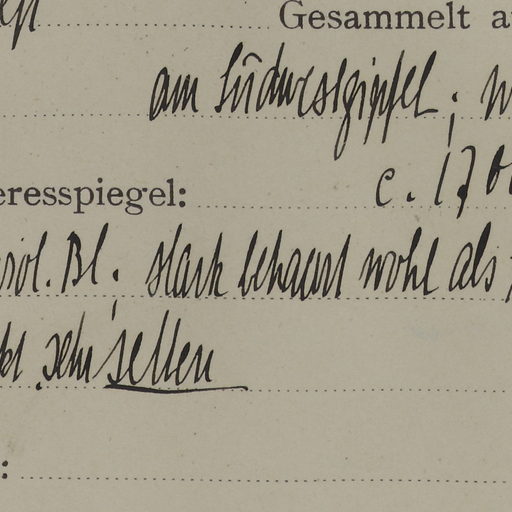 Gesammelt
am Südwestgipfel;
eresspiegel: c. 170
Bl. stark behaart wohl als
sehr selten
: